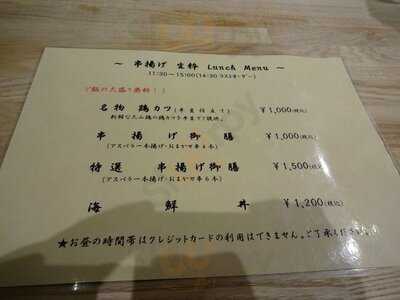 ～ 串揚げ 宝粋 Lunch Menu ～
11:30～15:00(14:30ラストオーダー)
ご飯の大盛り無料！！
名物 鶏カツ(半身仕立て) ￥1,000(税込)
新鮮な大山鶏の鶏カツ
串揚げ御膳 ￥1,000(税込)
(アスパラ一本揚げ・おまかせ串4本)
特選 串揚げ御膳 ￥1,500(税込)
(アスパラ一本揚げ・おまかせ串6本)
海鮮丼 ￥1,200(税込)
★お昼の時間帯はクレジットカードの利用はできません。ご了承ください